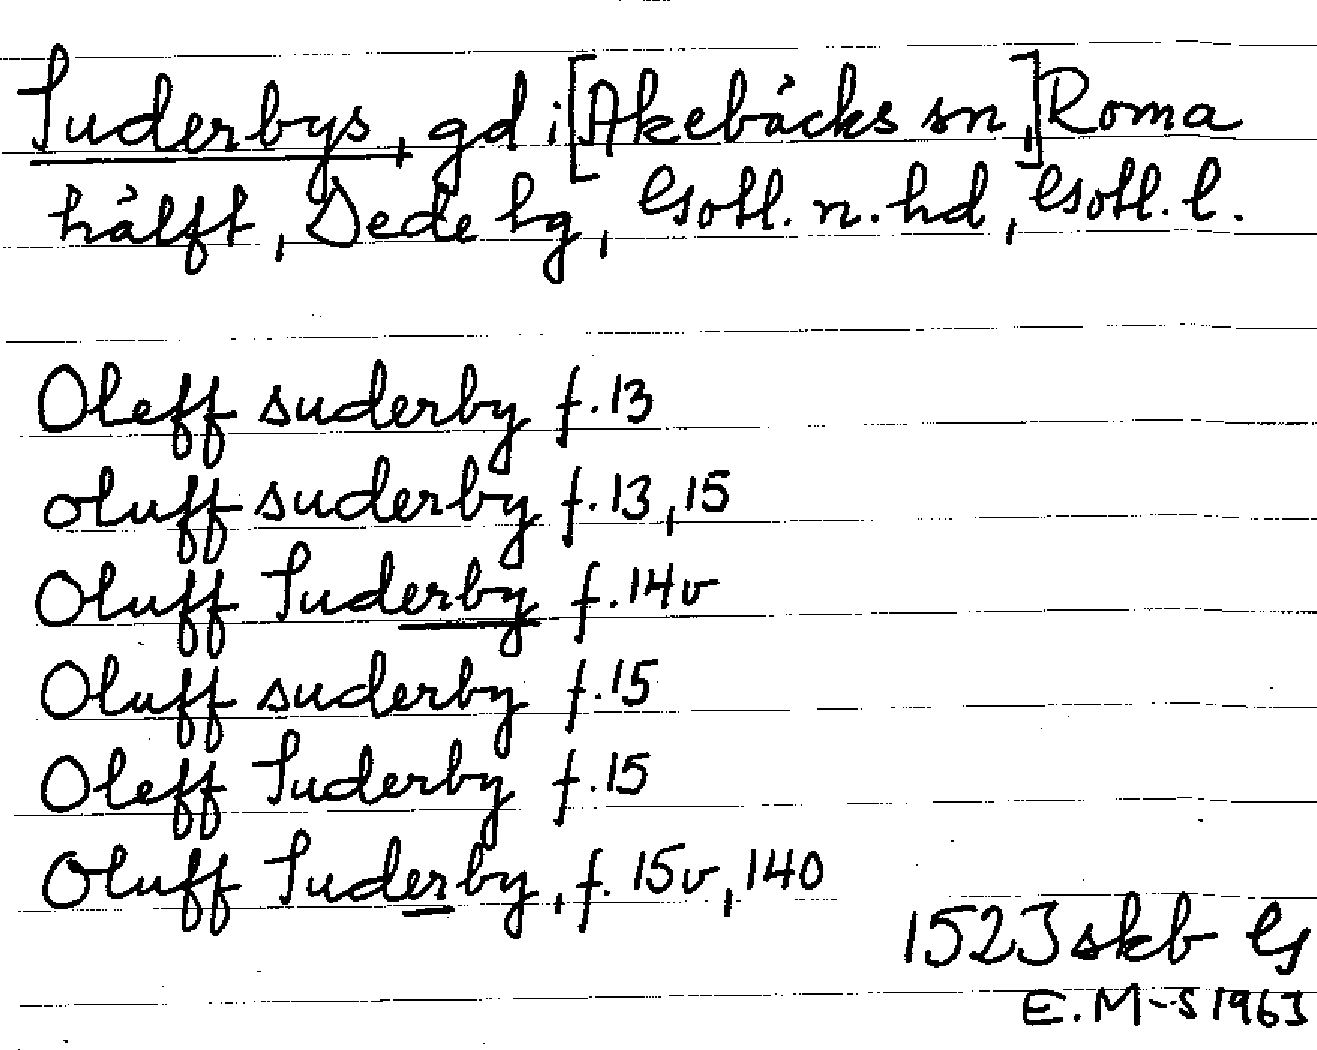 Suderbys, gd i [Akebäcks sn,] Roma
hälft, Dede hg, Gotl. n. hd, Gotl. l.
Oleff suderby f. 13
oluff suderby f. 13, 15
Oluff Suderby f. 14v
Oluff suderby f. 15
Oleff Suderby f. 15
Oluff Suderby, f. 15v, 140
1523 skb G
E. M-S 1963